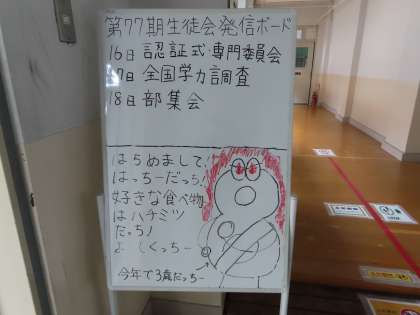 第77期生徒会発信ボード
16日 認証式・専門委員会
17日 全国学力調査
18日 部集会
はちめまして!
はっちーだっち!
好きな食べ物
はハチミツ
だっち!
よ しくっちー
今年で3歳だっちー